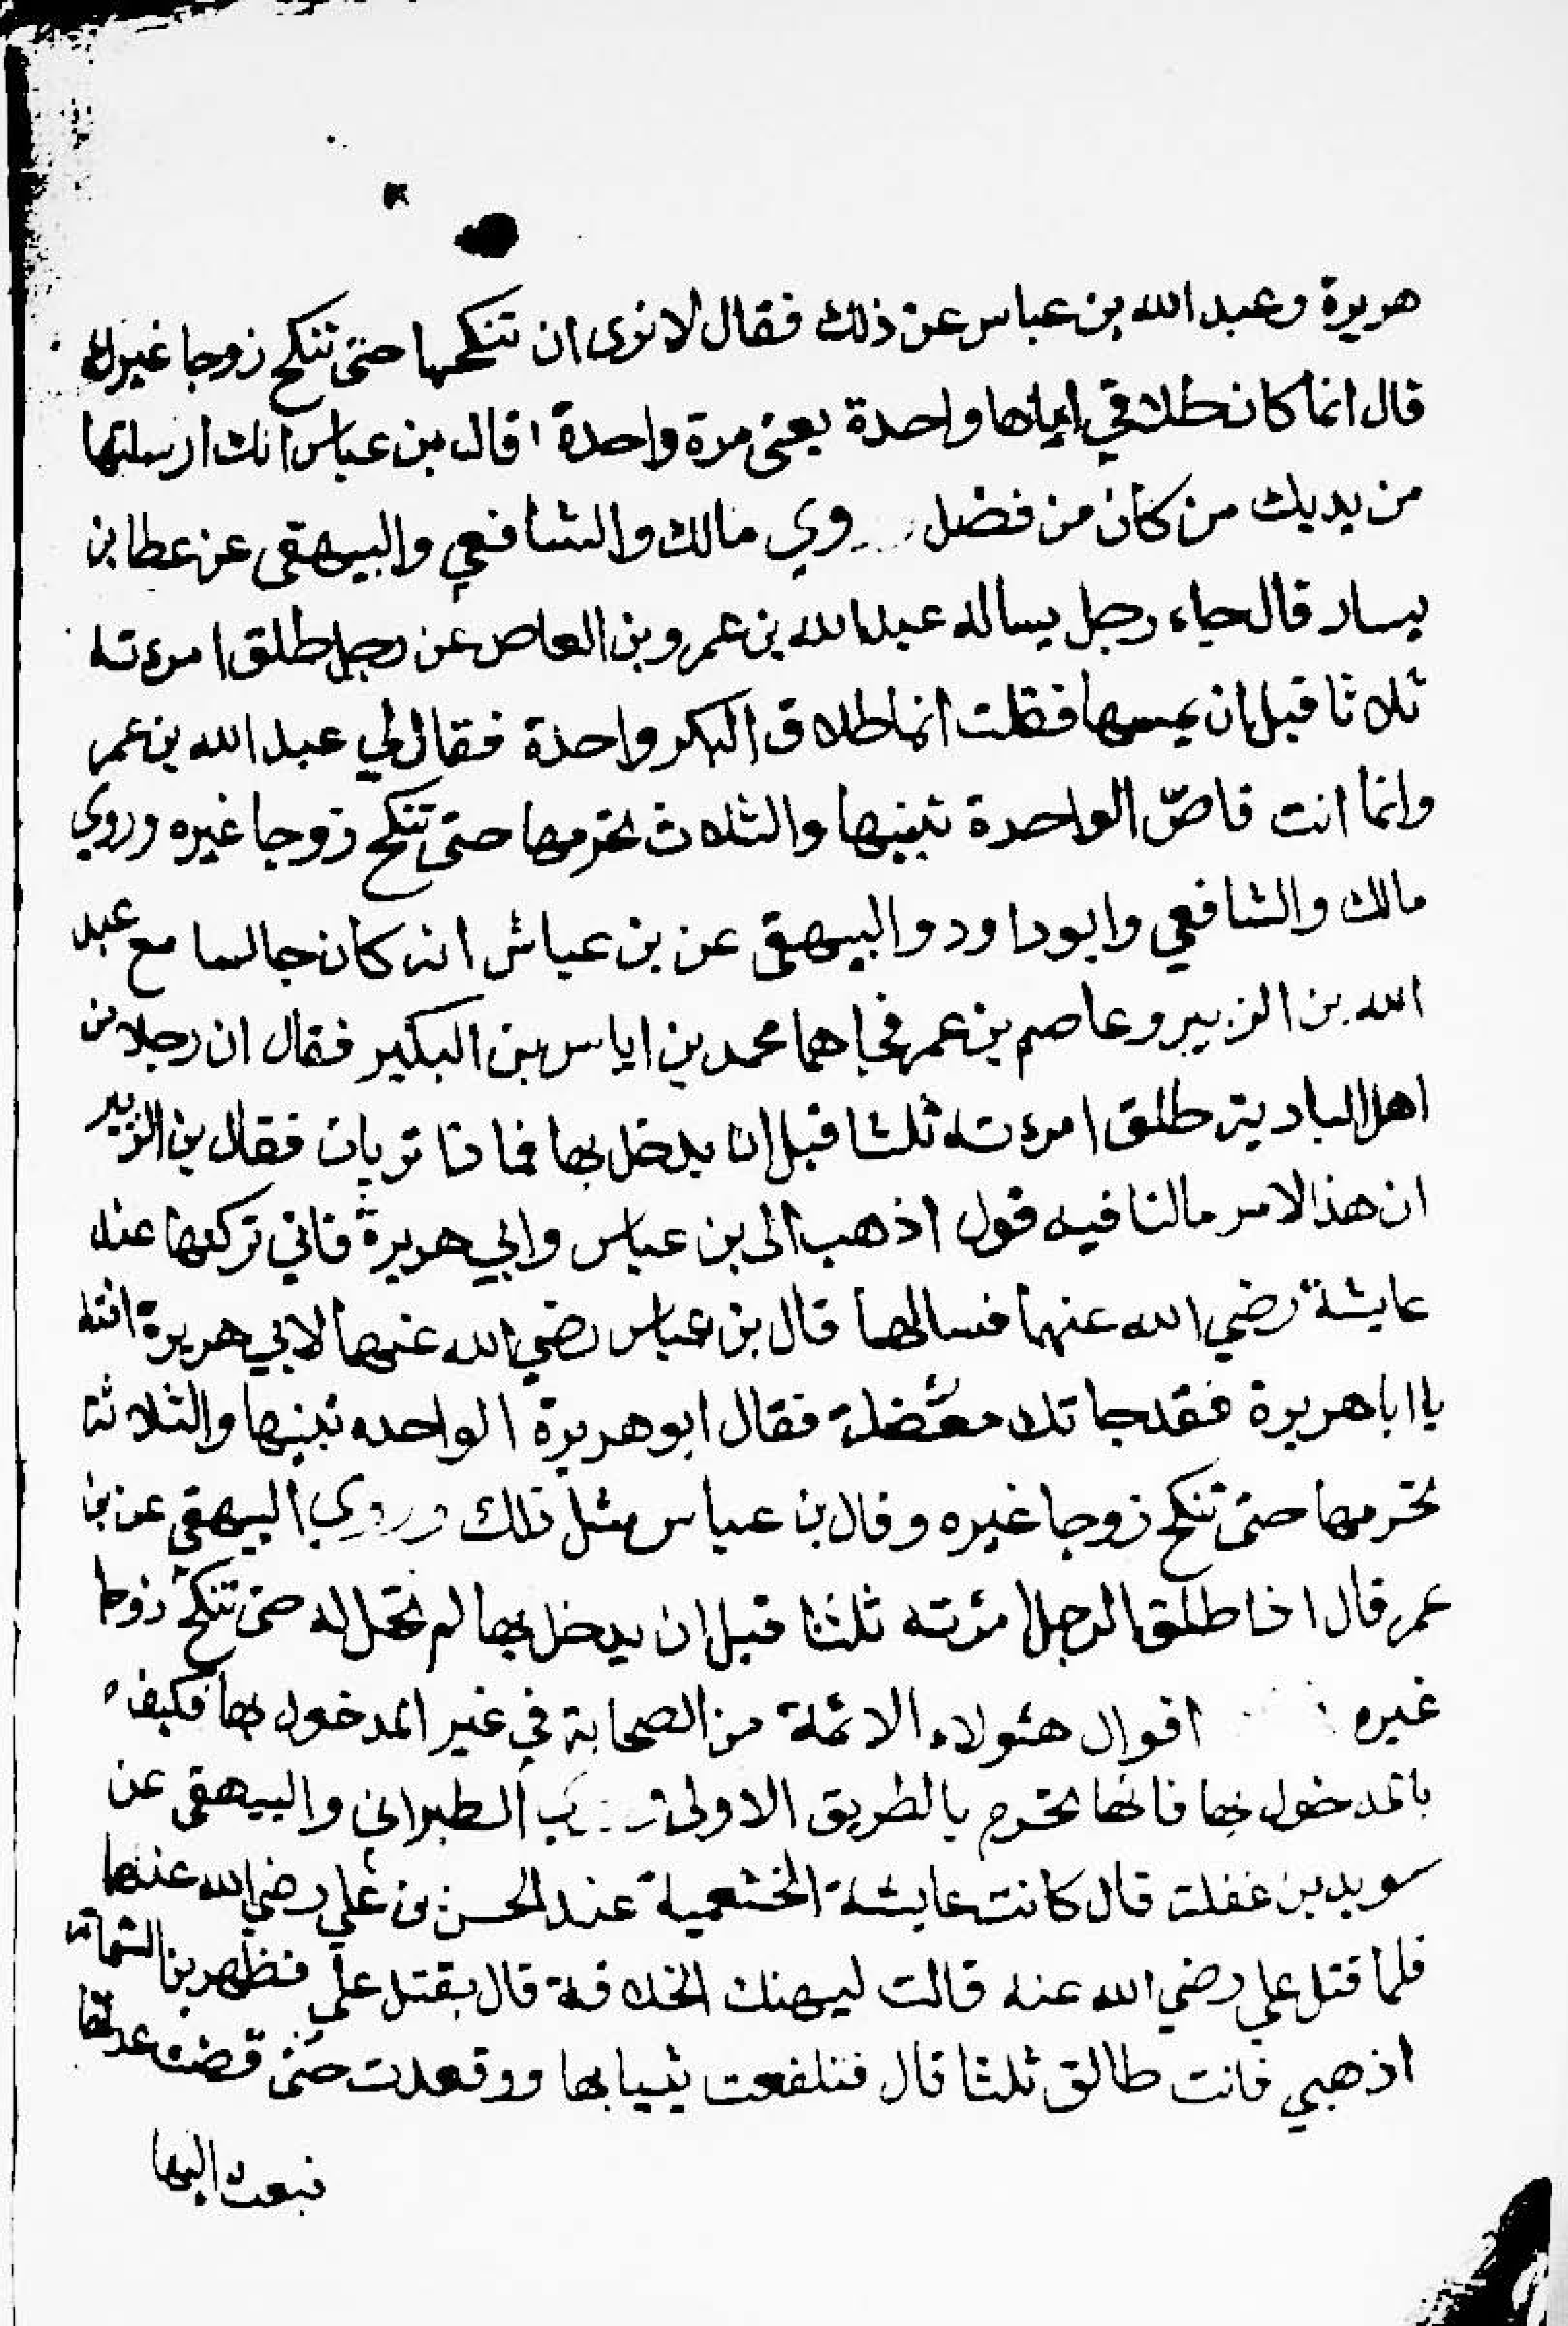 هريرة وعبد الله بن عباس عن ذلك فقال لا نرى ان تنكحها حتى تنكح زوجا غيرك
قال انما كان طلاقي اياها واحدة يعني مرة واحدة قال بن عباس انك ارسلتها
من يديك من كان من فضل وي مالك والشافعي والبيهقي عن عطا بن
يسار قال جاء رجل يساله عبد الله بن عمرو بن العاص عن رجل طلق امرءته
ثلاثا قبل ان يمسها فقلت انما طلاق البكر واحدة فقال لي عبد الله بن عمر
وانما انت قاصّ الواحدة تبينها والثلاث تحرمها حتى تنكح زوجا غيره وروي
مالك والشافعي وابو داود والبيهقي عن بن عباش انه كان جالسا مع عبد
الله بن الزبير وعاصم بن عمر فجاهما محمد بن اياس بن البكير فقال ان رجلا من
اهل البادية طلق امرءته ثلثا قبل ان يدخل بها فماذا تريان فقال بن الزبير
ان هذا الامر مالنا فيه قول اذهب الى بن عباس وابي هريرة فاني تركتها عند
عايشة رضي الله عنهما فسالها قال بن عباس رضي الله عنهما لابي هريرة افته
يا ابا هريرة فقد جاتك معضلة فقال ابو هريرة الواحده تبينها والثلاثة
تحرمها حتى تنكح زوجا غيره وقال بن عباس مثل ذلك وروي البيهقي عن بن
عمر قال اذا طلق الرجل امرئته ثلثا قبل ان يدخل بها لم تحل له حتى تنكح زوجا
غيره اقوال هئولاء الائمة من الصحابة في غير المدخول بها فكيف
بالمدخول بها فانها تحرم بالطريق الاولى الطبراني والبيهقي عن
سويد بن غفلة قال كانت عايشة الخثعمية عند الحسن بن علي رضي الله عنهما
فلما قتل علي رضي الله عنه قالت ليهنك الخلافة قال بقتل علي فظهرين الشماتة
اذهبي فانت طالق ثلثا قال فتلفعت بثيابها ووقعدت حتى قضت عدتها
فبعث اليها